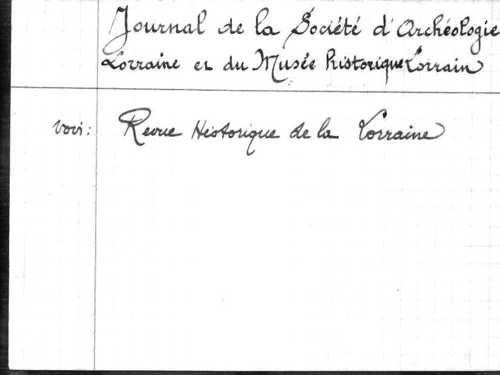 Journal de la Société d'Archéologie
Lorraine et du Musée historique Lorrain
voir: Revue Historique de la Lorraine